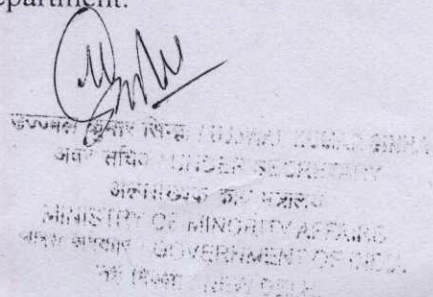 epartment.
उज्ज्वल कुमार सिन्हा / UJJWAL KUMAR SINHA
अवर सचिव / UNDER SECRETARY
अल्पसंख्यक कार्य मंत्रालय
MINISTRY OF MINORITY AFFAIRS
भारत सरकार / GOVERNMENT OF INDIA
नई दिल्ली / NEW DELHI